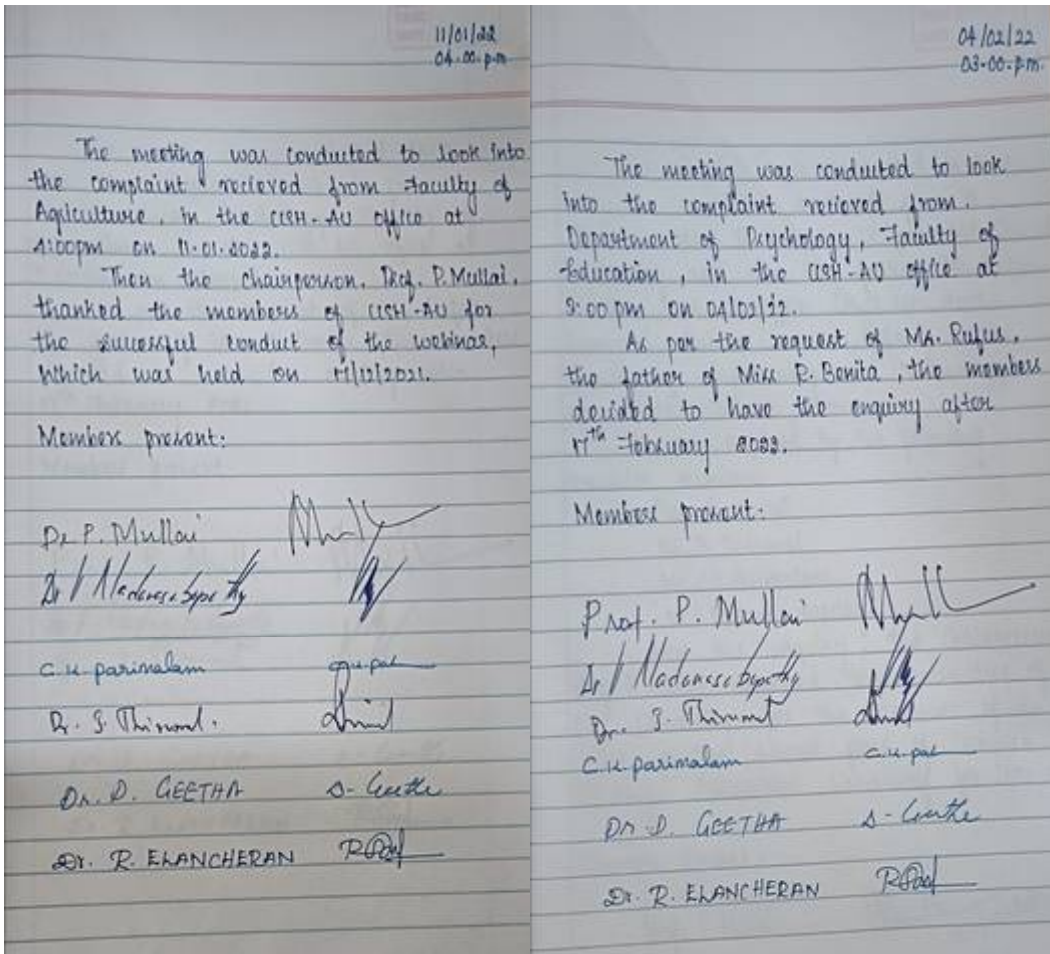 11/01/22
04.00.p.m
The meeting was conducted to look into
the complaint recieved from Faculty of
Agriculture, in the CCSH-AU office at
4:00pm on 11.01.2022.
Then the chairperson, Prof. P. Mullai,
thanked the members of CCSH-AU for
the successful conduct of the webinar,
which was held on 17/12/2021.
Members present:
Dr P. Mullai
Dr V
C.K. parimalam
Dr. S.
Dr. D. GEETHA D. Geetha
Dr. R. ELANCHERAN
04/02/22
03-00-p.m.
The meeting was conducted to look
into the complaint recieved from,
Department of Psychology, Faculty of
Education, in the CCSH-AU office at
3:00 pm on 04/02/22.
As per the request of Mr. Rufus,
the father of Miss R. Benita, the members
decided to have the enquiry after
17th February 2022.
Members present:
Prof. P. Mullai
Dr V
Dr. S.
C.K. parimalam
Dr D. GEETHA D. Geetha
Dr. R. ELANCHERAN